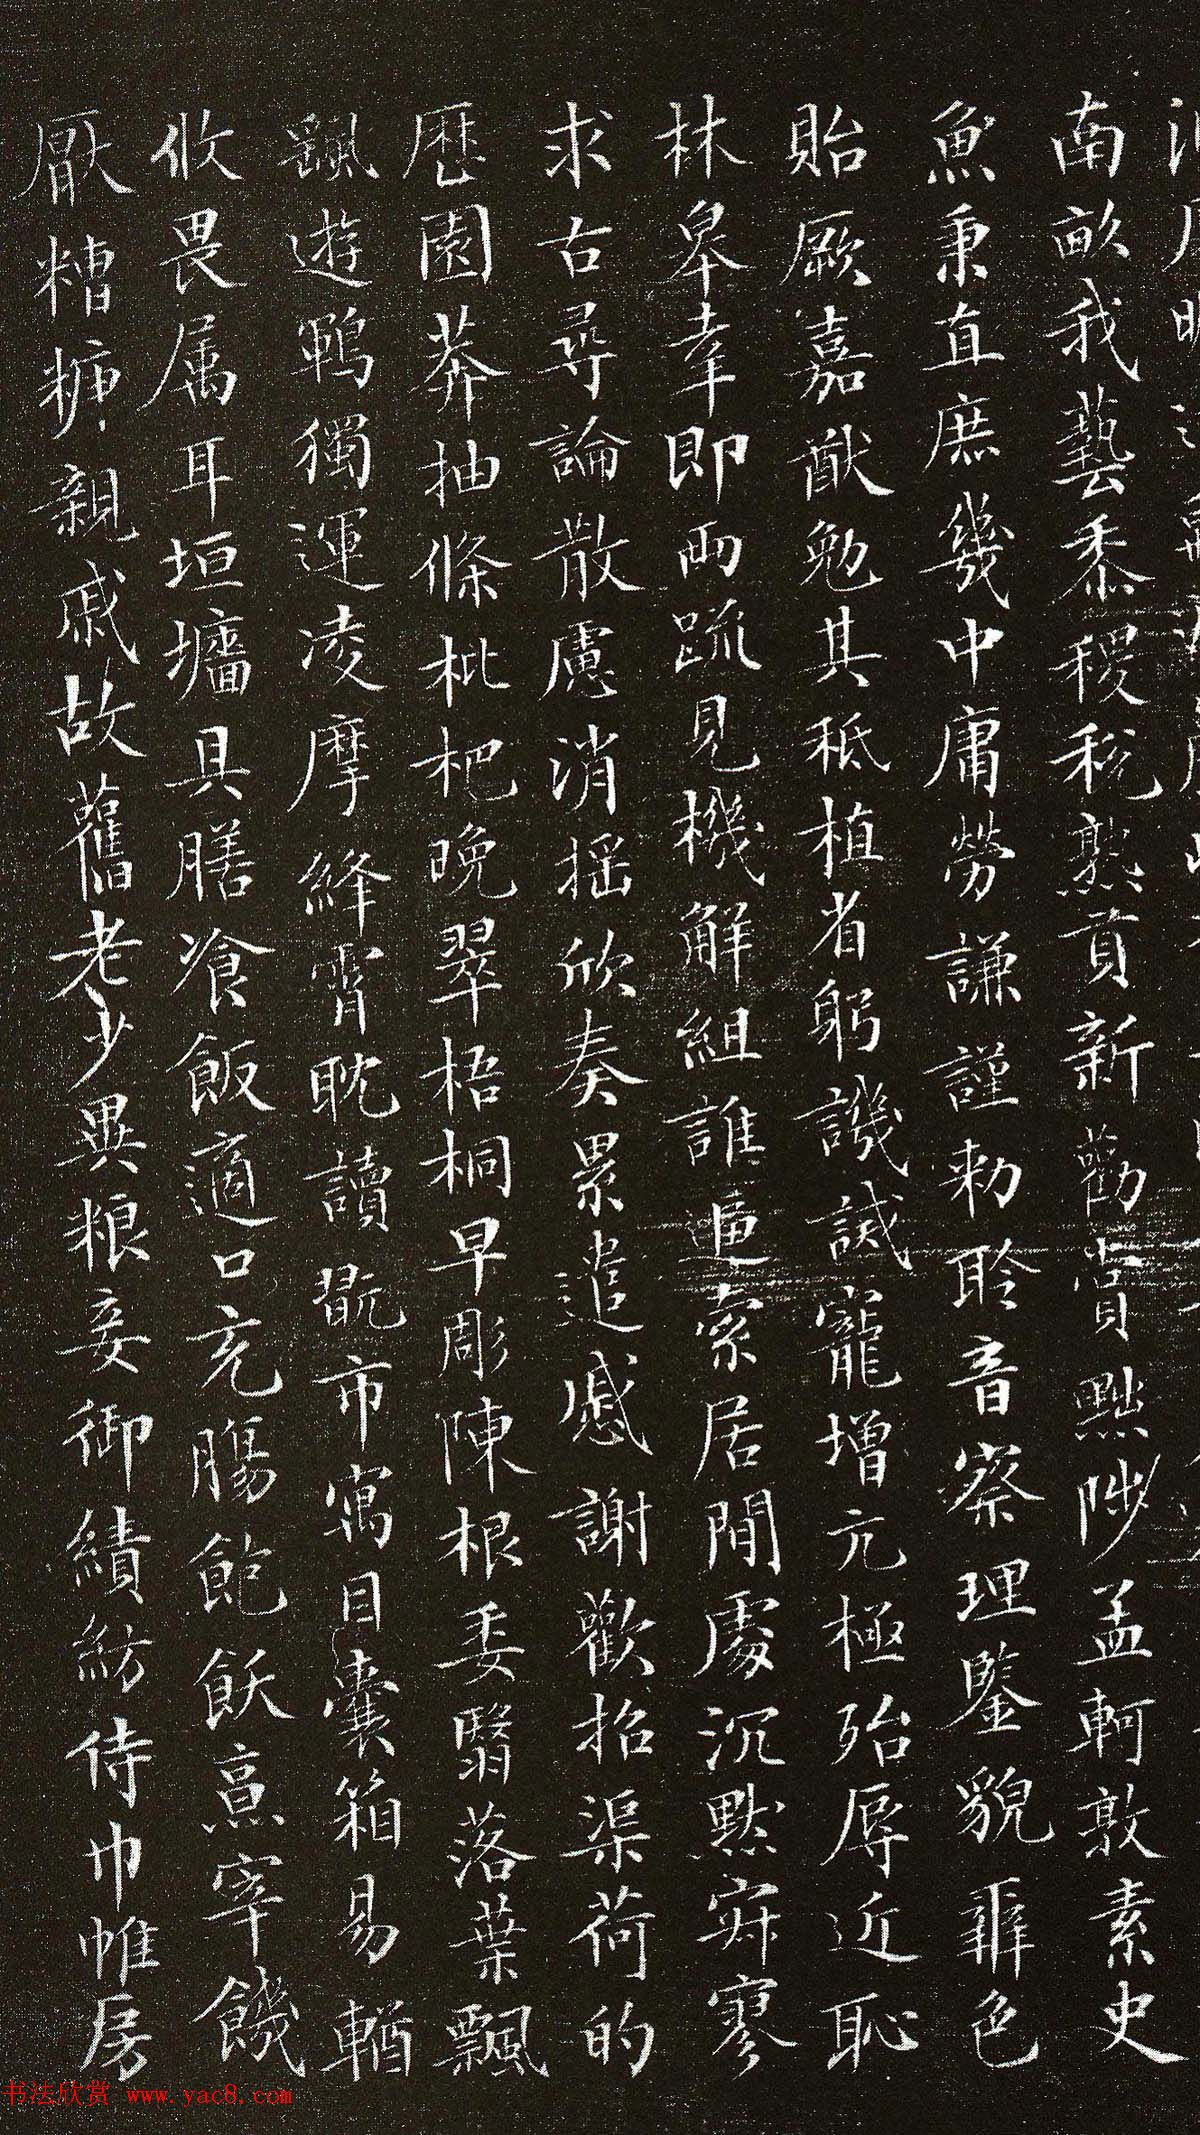 南畝我藝黍稷稅熟貢新勸賞黜陟孟軻敦素史
魚秉直庶幾中庸勞謙謹勑聆音察理鑒貌辯色
貽厥嘉猷勉其祗植省躬譏誡寵增亢極殆辱近恥
林皋幸即兩疏見機解組誰逼索居閒處沉默寂寥
求古尋論散慮消摇欣奏累遣慼謝歡招渠荷的
歷園莽抽條枇杷晚翠梧桐早彫陳根委翳落葉飄
颻遊鶤獨運凌摩絳霄耽讀翫市寓目囊箱易輶
攸畏属耳垣墻具膳飡飯適口充腸飽飫烹宰饑
厭糟糠親戚故舊老少異粮妾御績紡侍巾帷房
书法欣赏 www.yac8.com